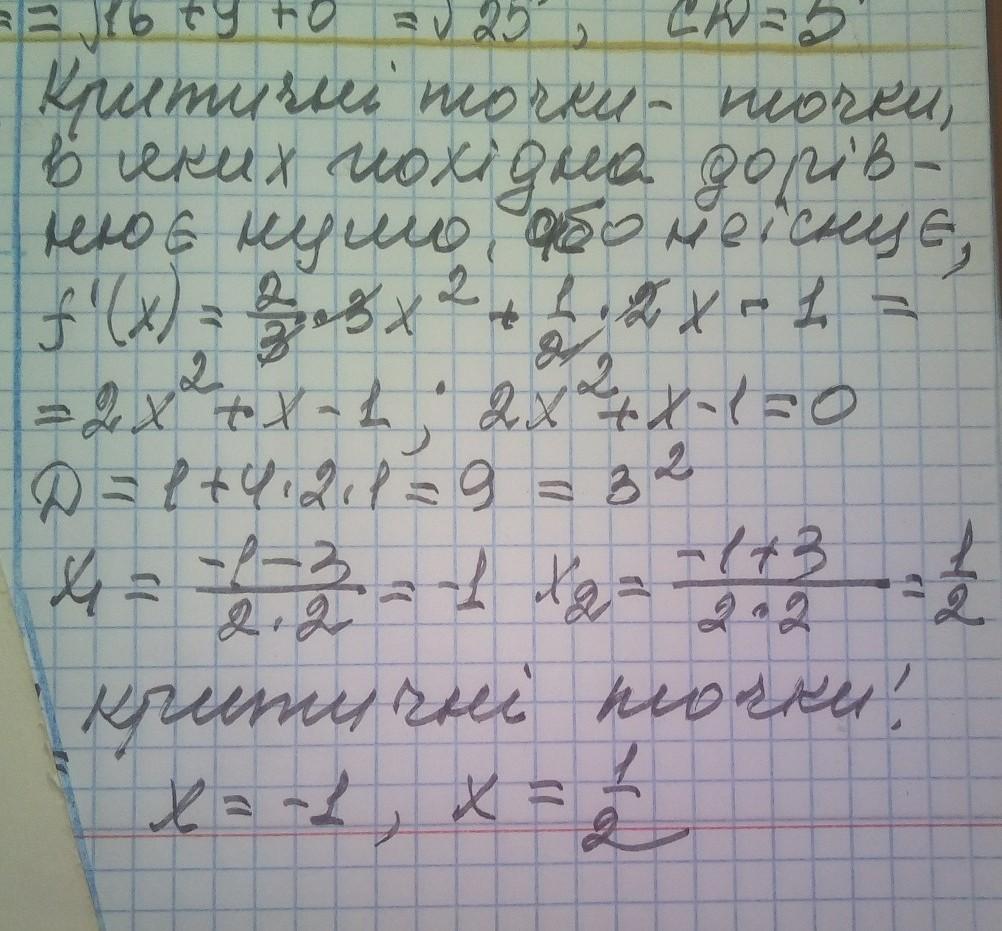 = = √16 + 9 + 0 = √25, CD = 5
Критичні точки - точки,
в яких похідна дорів-
нює нулю, або не існує,
f'(x) = 2/3 · 3x² + 1/2 · 2x - 1 =
= 2x² + x - 1; 2x² + x - 1 = 0
D = 1 + 4 · 2 · 1 = 9 = 3²
x₁ = (-1 - 3)/(2 · 2) = -1 x₂ = (-1 + 3)/(2 · 2) = 1/2
критичні точки:
x = -1, x = 1/2